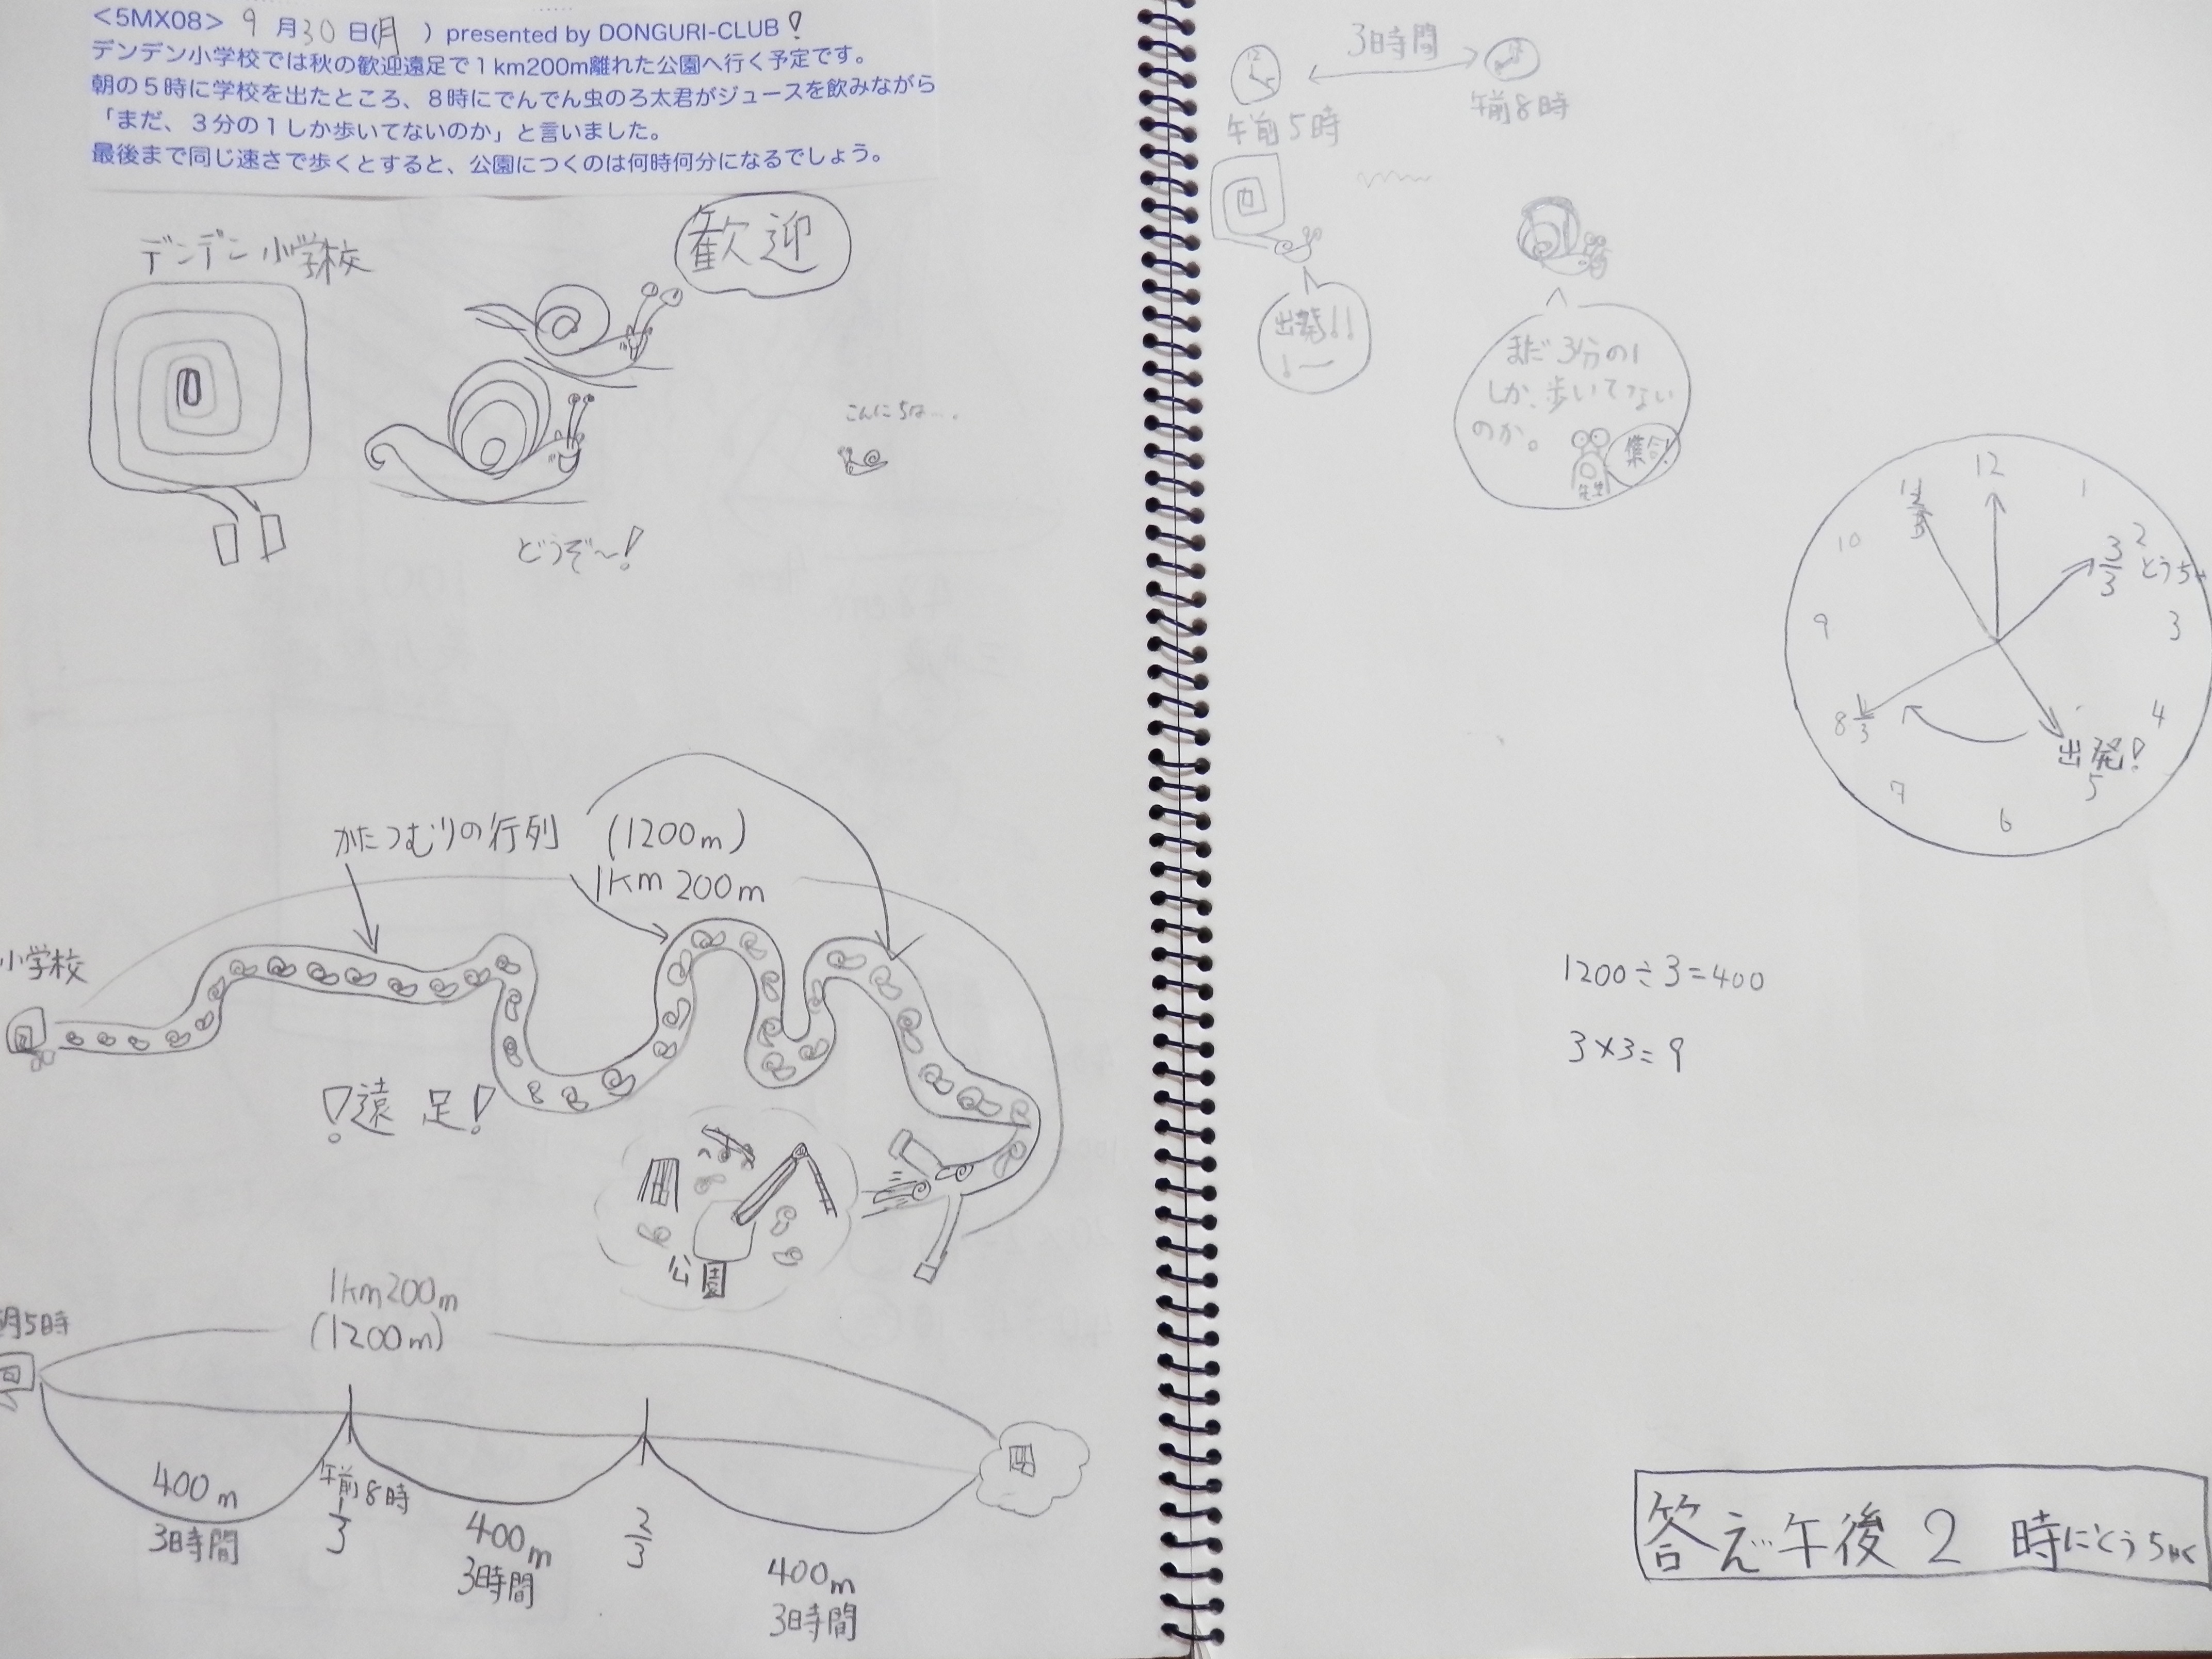 <5MX08> 9月30日(月) presented by DONGURI-CLUB!
デンデン小学校では秋の歓迎遠足で1km200m離れた公園へ行く予定です。
朝の5時に学校を出たところ、8時にでんでん虫のろ太君がジュースを飲みながら
「まだ、3分の1しか歩いてないのか」と言いました。
最後まで同じ速さで歩くとすると、公園につくのは何時何分になるでしょう。
デンデン小学校
歓迎
こんにちは….
どうぞ〜!
かたつむりの行列
(1200m)
1km200m
小学校
!遠足!
公園
1km200m
(1200m)
朝5時
400m
3時間
午前8時
1/3
400m
3時間
2/3
400m
3時間
3時間
午前5時
午前8時
出発!!
まだ3分の1
しか、歩いてない
のか。
集合!
先生
12
1
2
3/3
とうち
3
4
出発!
5
6
7
8
1/3
9
10
1200÷3=400
3×3=9
答え 午後2時にとうちゃく